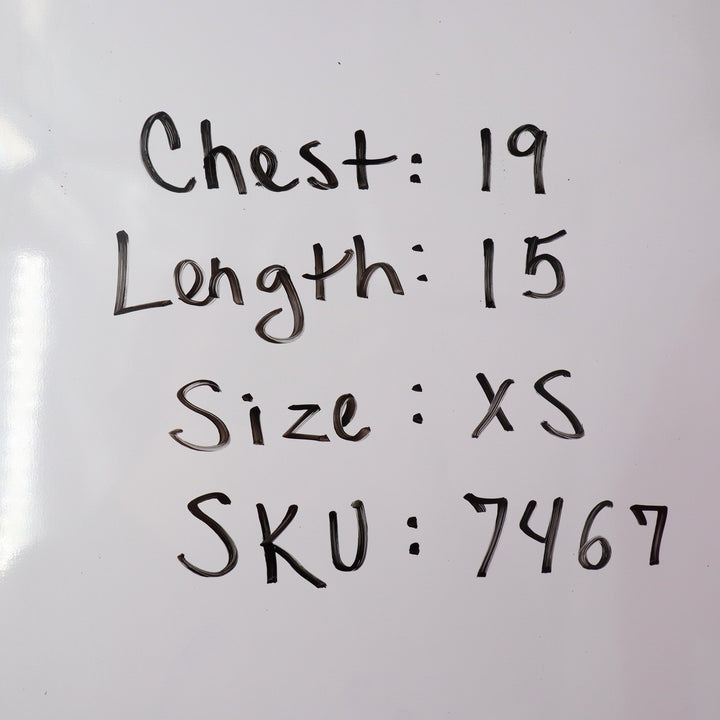 Chest: 19
Length: 15
Size: XS
SKU: 7467